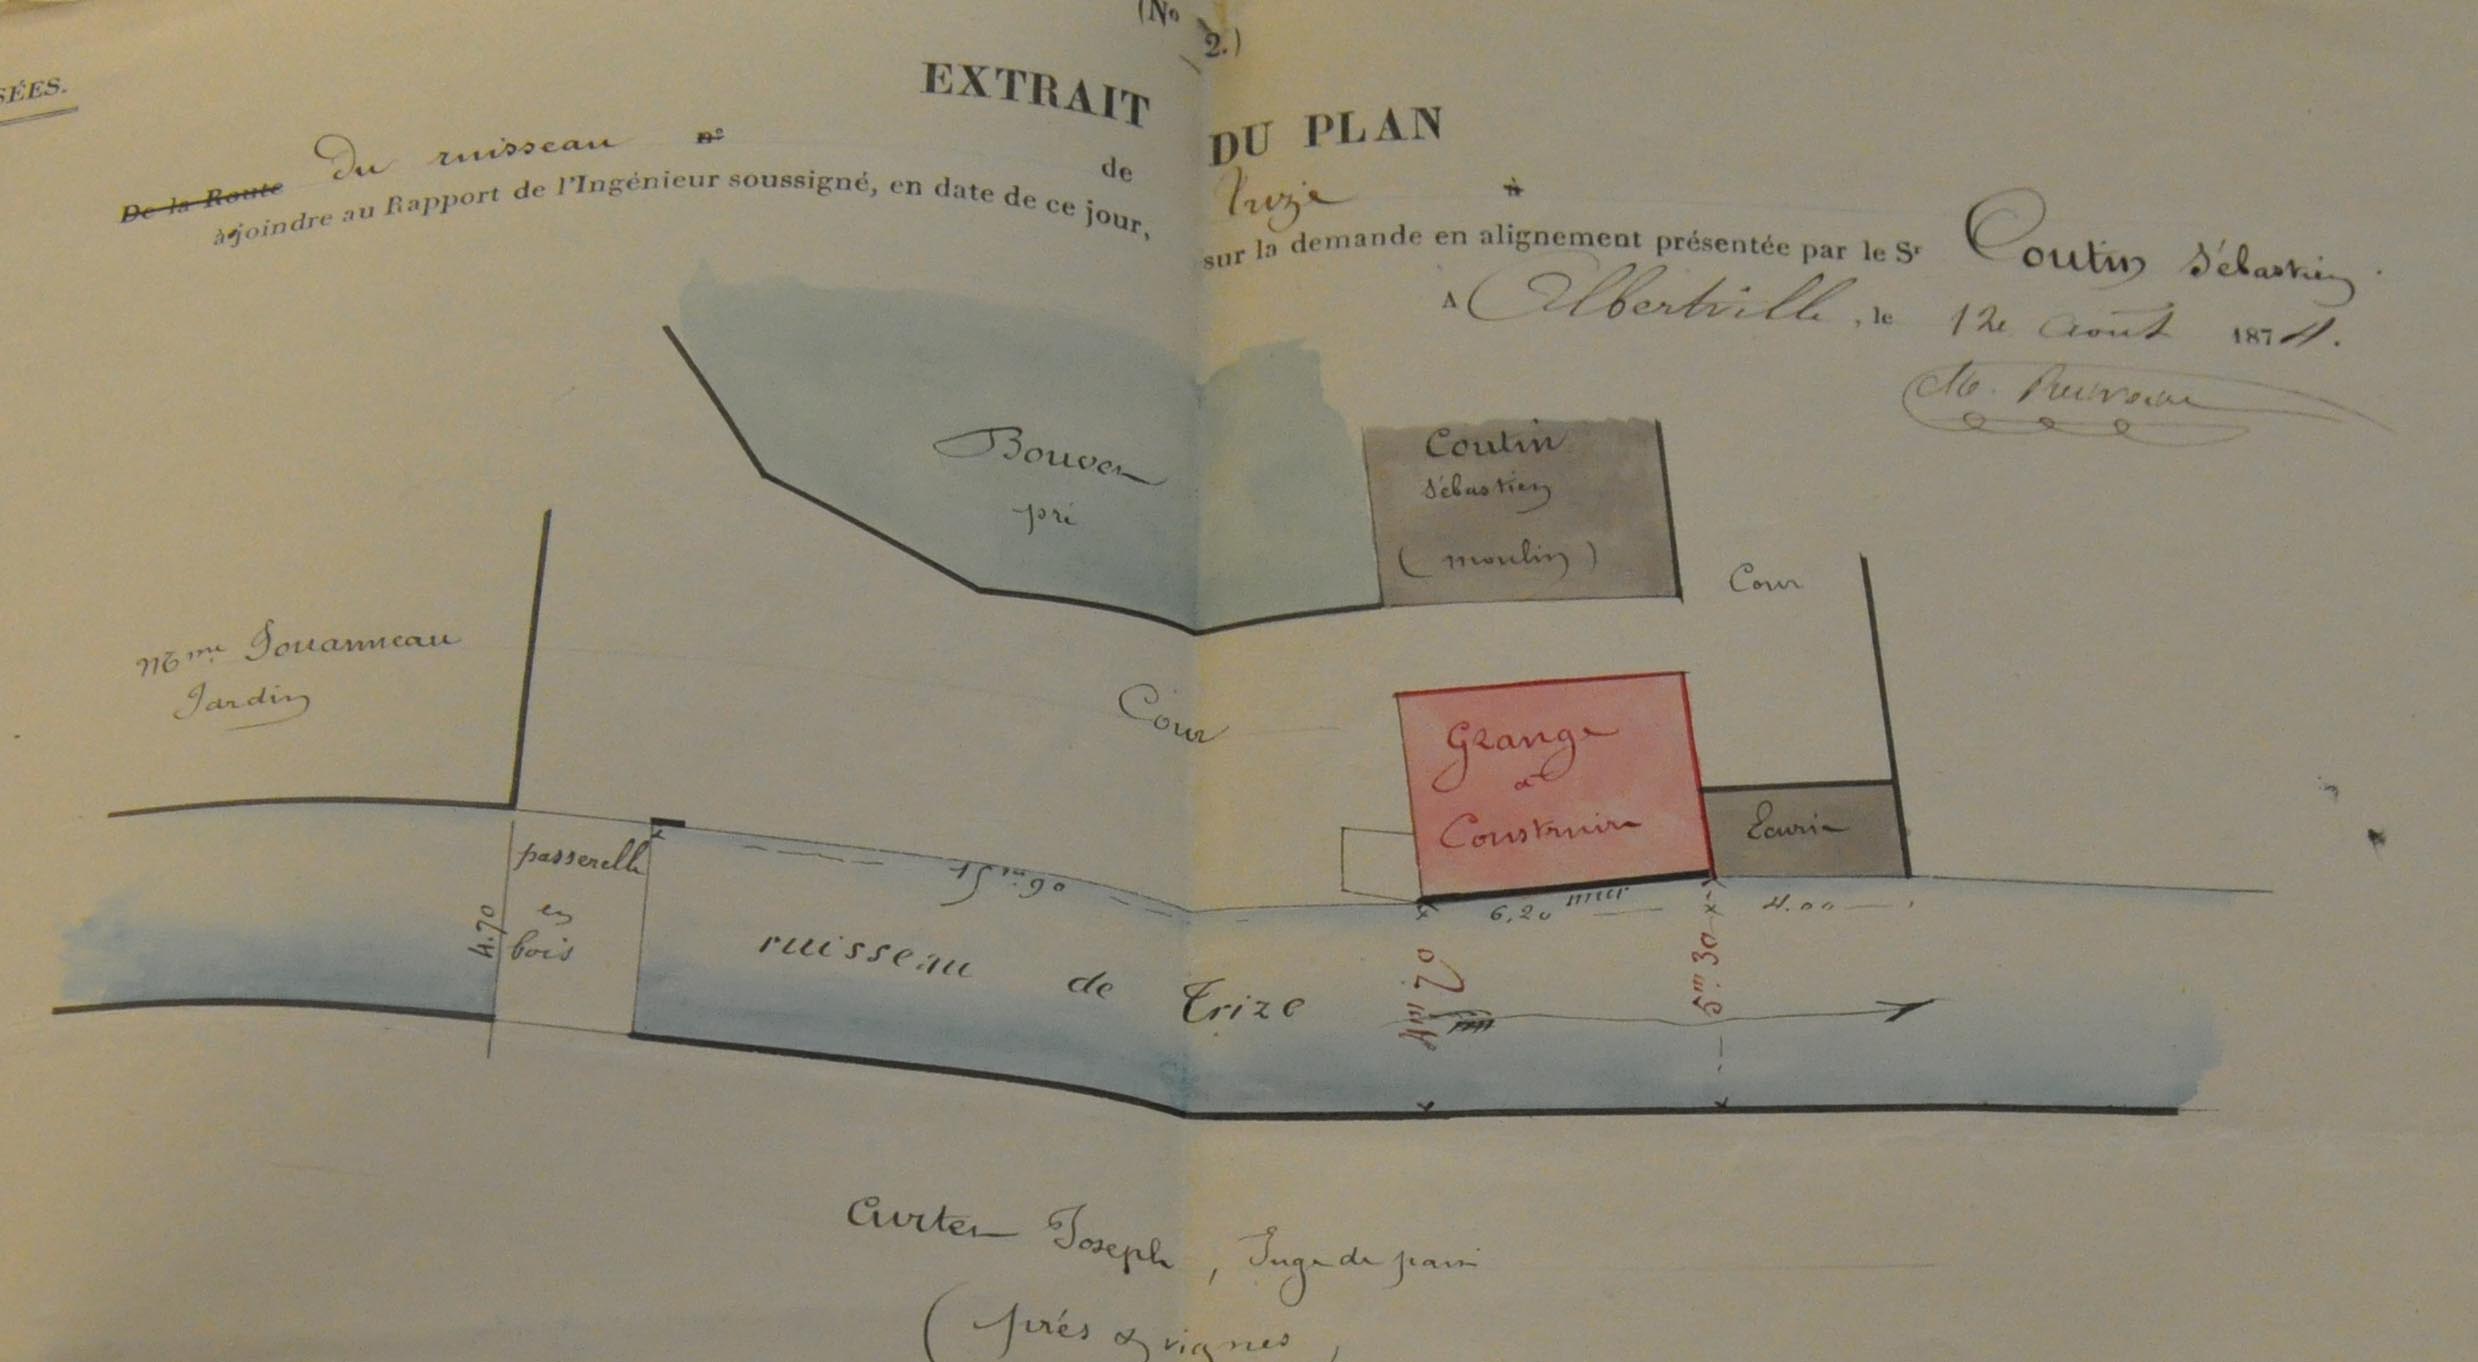 (No 2.)
SÉES.
EXTRAIT DU PLAN
De la Route Du ruisseau n° de Trize à
à joindre au Rapport de l'Ingénieur soussigné, en date de ce jour, sur la demande en alignement présentée par le Sr Coutin Sébastien.
A Albertville, le 12 août 1874.
Bouver
pré
Coutin
Sébastien
(moulin)
Cour
Mme Jouanneau
Jardin
Cour
Grange
à
Construire
Ecurie
passerelle
en
bois
4.70
15m.90
6,20 mur
4.00
ruisseau de Trize
4m.70
5m.30
Curter Joseph, Juge de paix
(prés & vignes